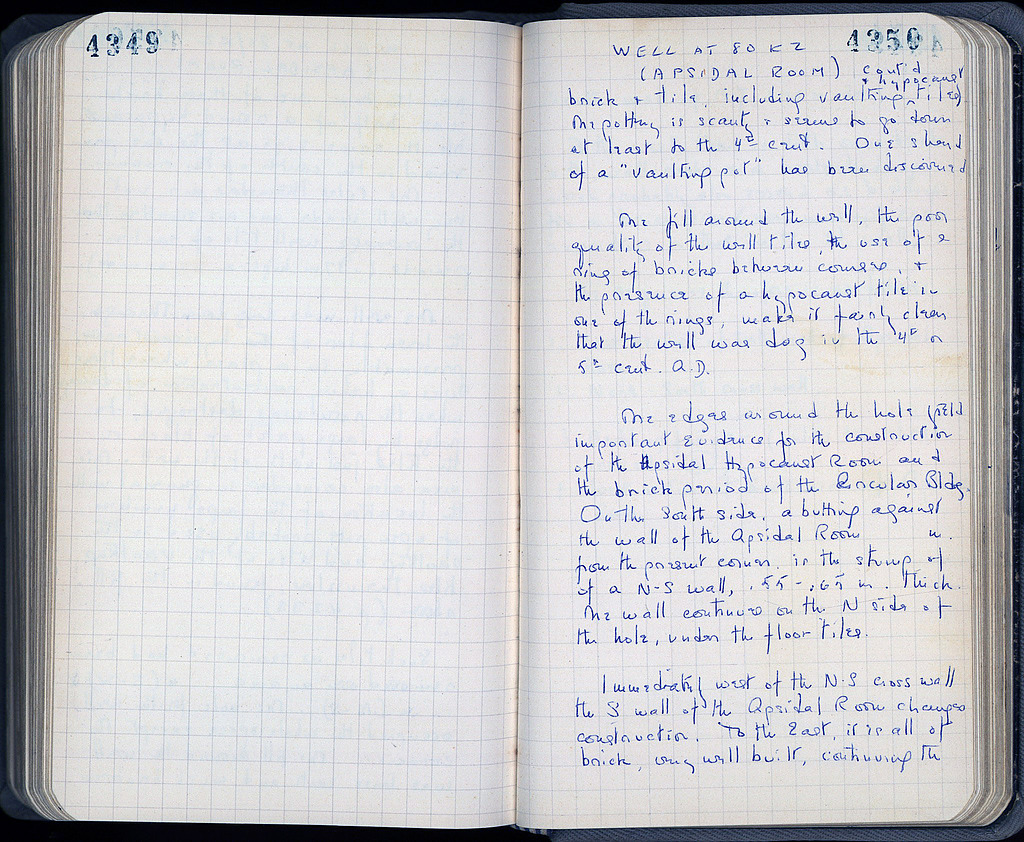 4349
4350
WELL AT 80 K 2
(APSIDAL ROOM) cont'd
+ hypocaust
brick + tile, including vaulting tiles).
The pottery is scanty + seems to go down
at least to the 4th cent. One sherd
of a "vaulting pot" has been discovered
The fill around the well, the poor
quality of the well tiles, the use of a
ring of bricks between courses, +
the presence of a hypocaust tile in
one of the rings, make it fairly clear
that the well was dug in the 4th or
5th cent. A.D.
The edges around the hole yield
important evidence for the construction
of the Apsidal Hypocaust Room and
the brick period of the Circular Bldg.
On the South side, abutting against
the wall of the Apsidal Room m.
from the present corner, is the stump of
of a N-S wall, .55-.65 m. thick.
The wall continues on the N side of
the hole, under the floor tiles.
Immediately west of the N-S cross wall
the S wall of the Apsidal Room changes
construction. To the East, it is all of
brick, very well built, continuing the